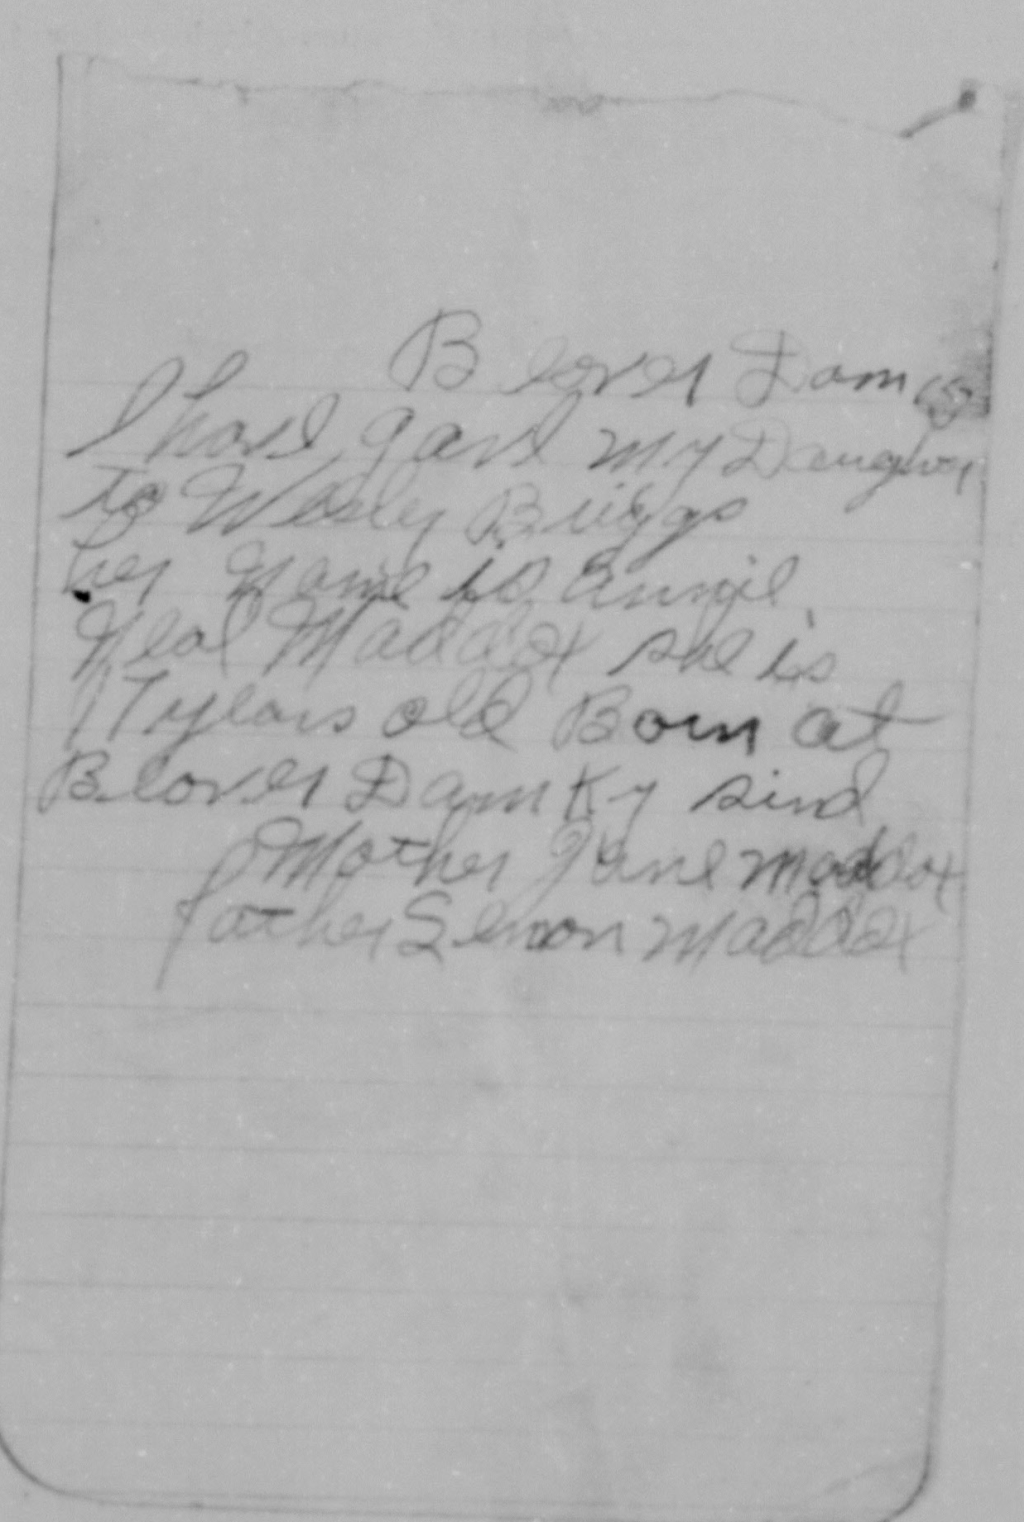 Beover Dam
I have gave my Daugher
to Wesley Briggs
her Name is Annie
Neal Maddox she is
17 years old Born at
Beover Dam Ky sind
Mother Jane Maddox
father Semon Maddox